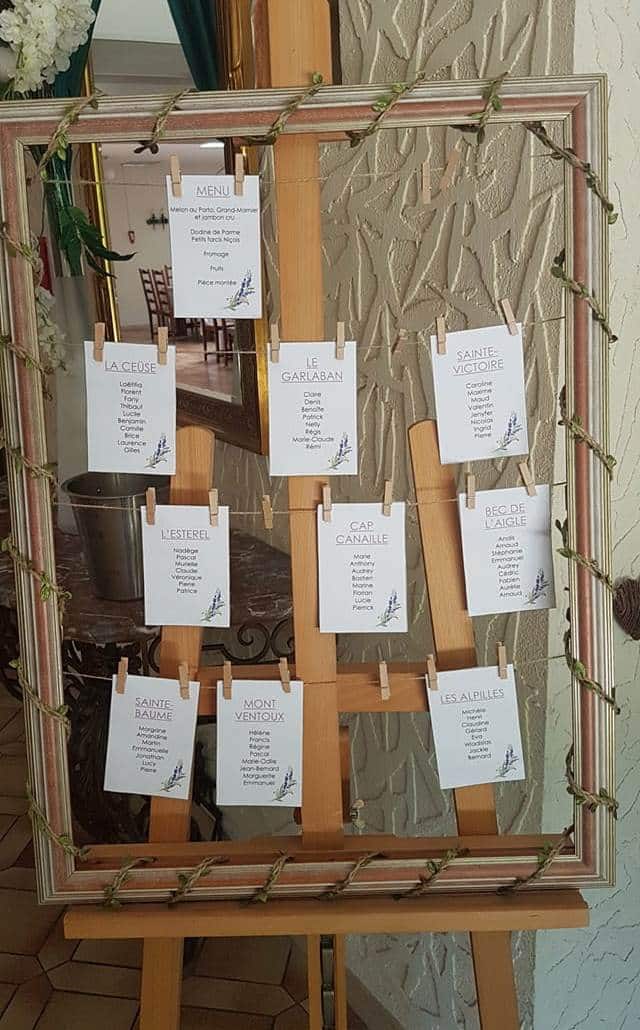 MENU
Melon au Porto, Grand-Marnier
et jambon cru
Dodine de Parme
Petits farcis Niçois
Fromage
Fruits
Pièce montée
LA CEÜSE
Laëtitia
Florent
Fany
Thibaut
Lucile
Benjamin
Camille
Brice
Laurence
Gilles
LE
GARLABAN
Claire
Denis
Benoîte
Patrick
Nelly
Régis
Marie-Claude
Rémi
SAINTE-
VICTOIRE
Caroline
Maxime
Maud
Valentin
Jenyfer
Nicolas
Ingrid
Pierre
L'ESTEREL
Nadège
Pascal
Murielle
Claude
Véronique
Pierre
Patrice
CAP
CANAILLE
Marie
Anthony
Audrey
Bastien
Marine
Florian
Lucie
Pierrick
BEC DE
L'AIGLE
Anaïs
Arnaud
Stéphanie
Emmanuel
Audrey
Cédric
Fabien
Aurélie
Arnaud
SAINTE-
BAUME
Morgane
Amandine
Martin
Emmanuelle
Jonathan
Lucy
Pierre
MONT
VENTOUX
Hélène
Francis
Régine
Pascal
Marie-Odile
Jean-Bernard
Marguerite
Emmanuel
LES ALPILLES
Michèle
Henri
Claudine
Gérard
Eva
Wladislas
Jackie
Bernard